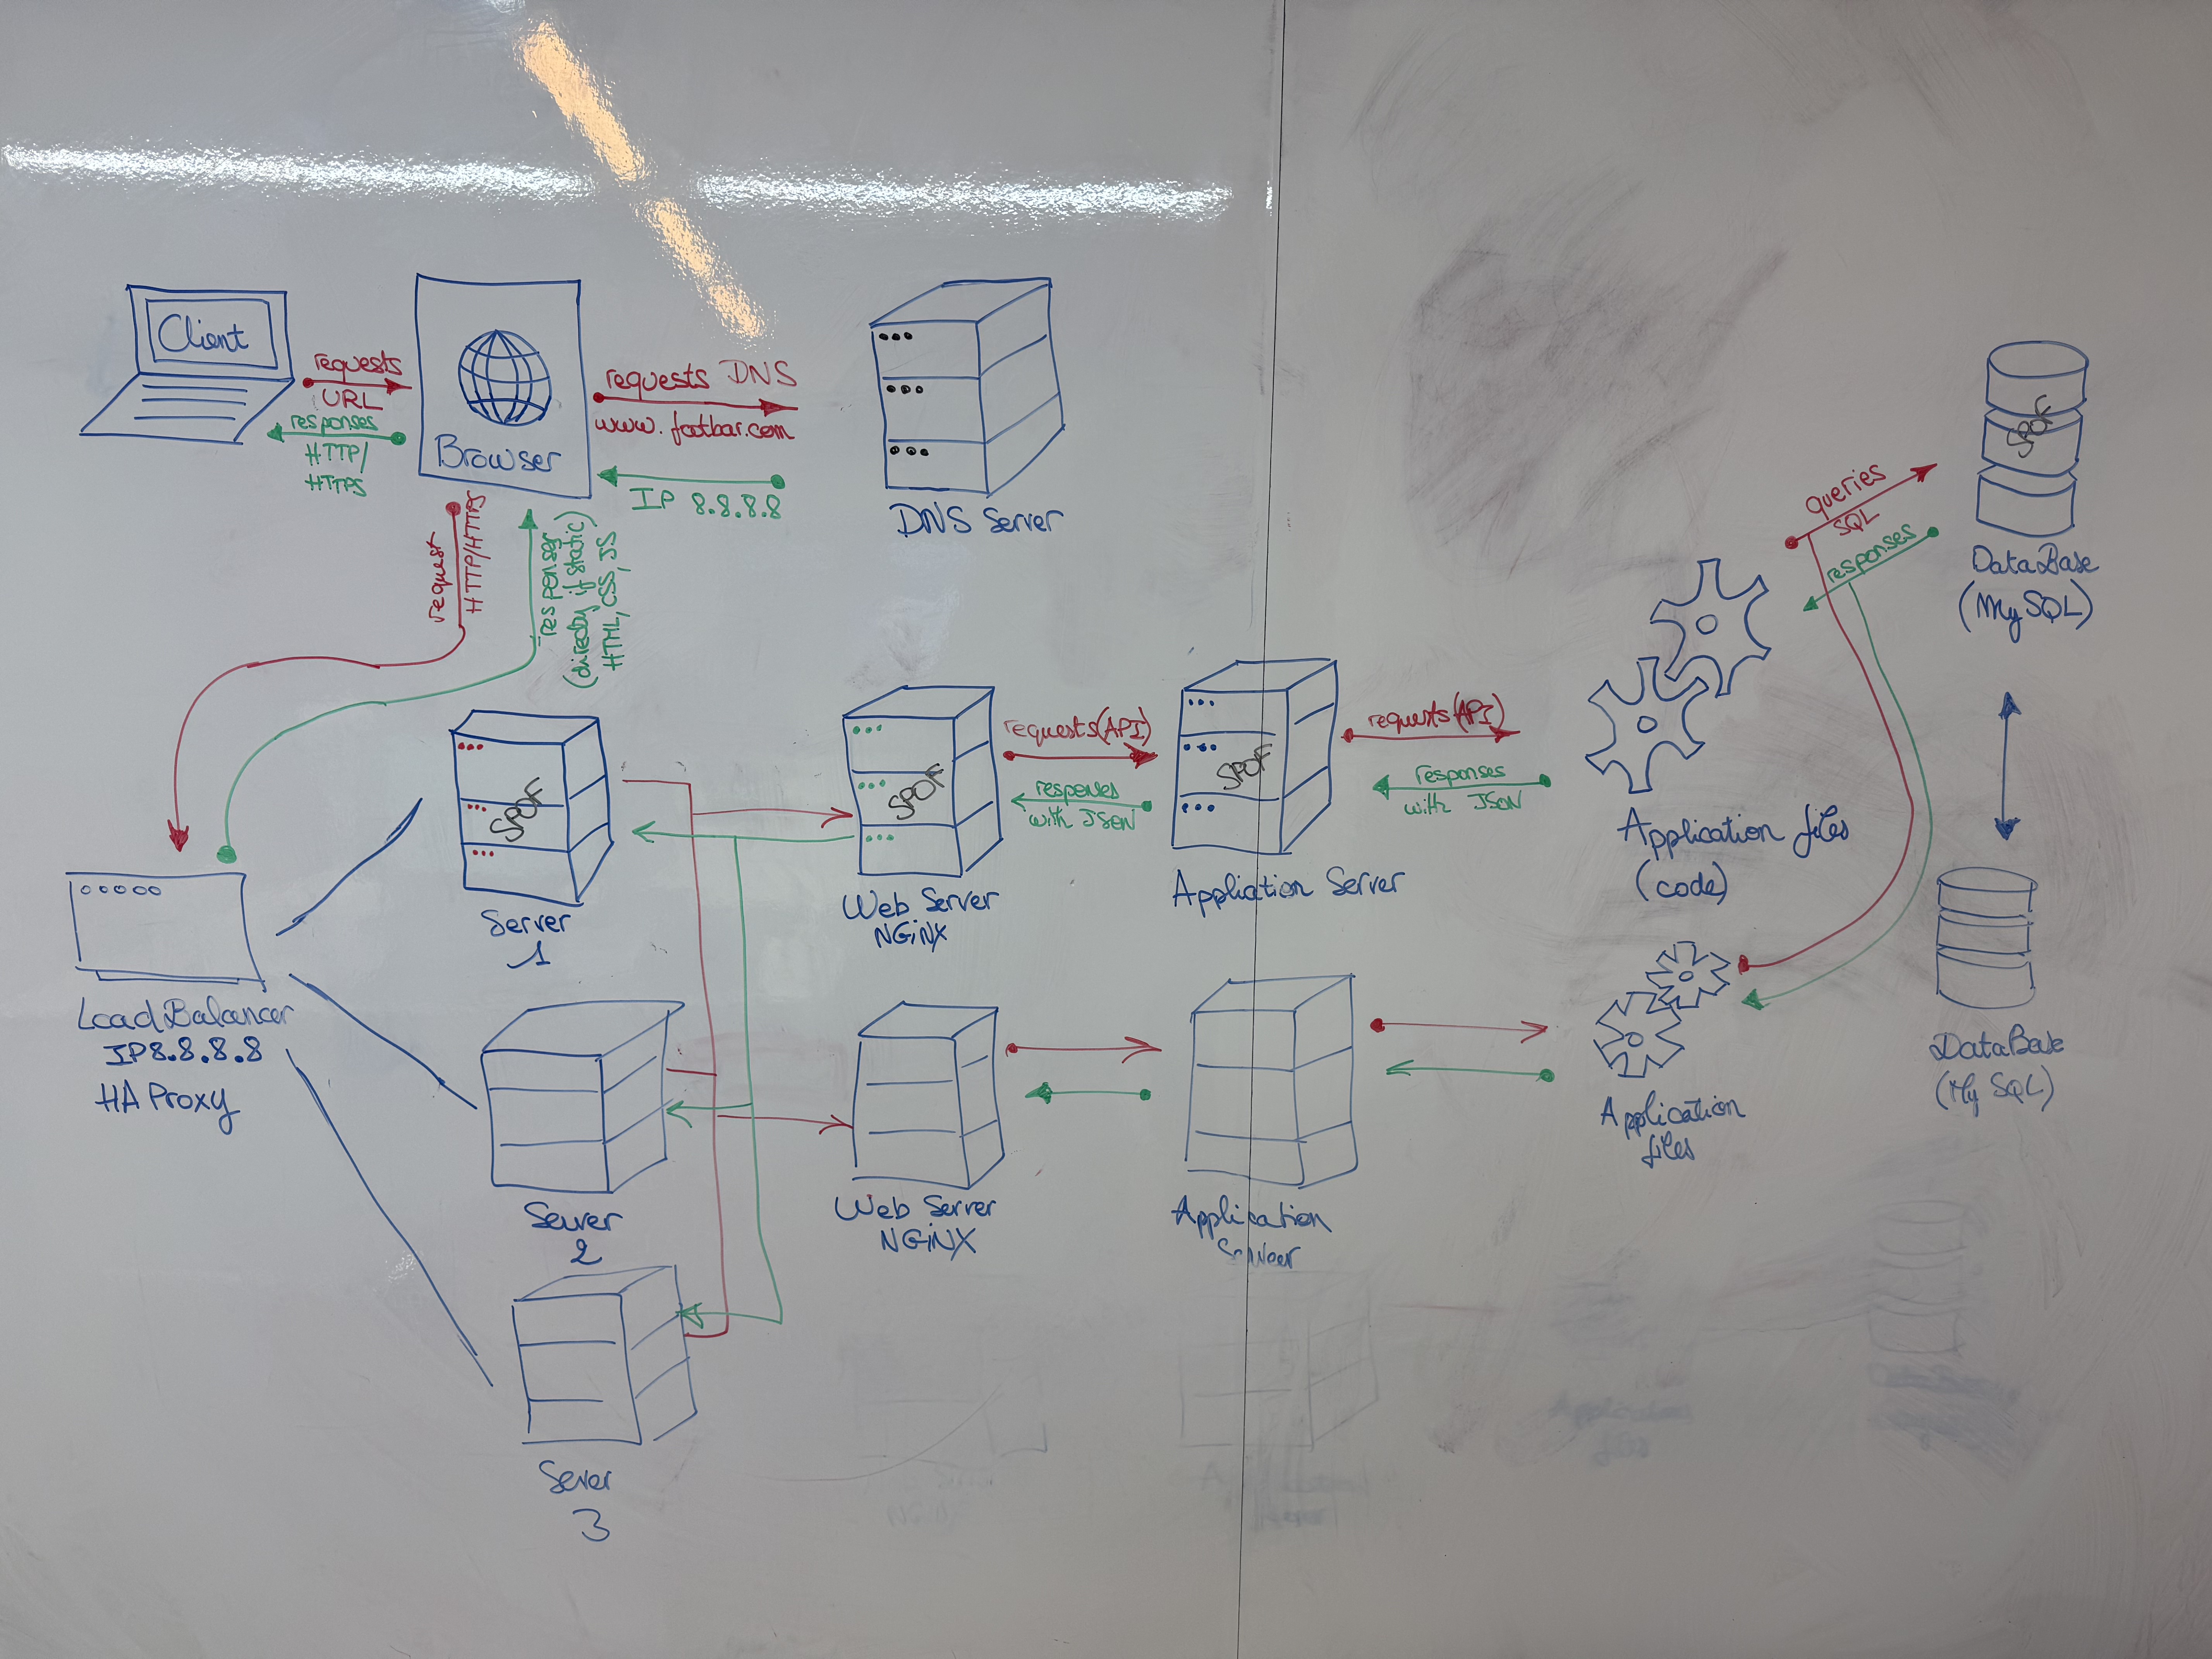 Client
requests
URL
responses
HTTP/
HTTPS
Browser
requests DNS
www.footbar.com
IP 8.8.8.8
DNS Server
request
HTTP/HTTPS
responses
(directly if static)
HTML, CSS, JS
Load Balancer
IP 8.8.8.8
HA Proxy
SPOF
Server
1
Server
2
Sever
3
SPOF
Web Server
NGiNX
requests (API)
responses
with JSON
SPOF
Application Server
requests (API)
responses
with JSON
Application files
(code)
queries
SQL
responses
SPOF
DataBase
(MySQL)
Web Server
NGiNX
Application
Server
Application
files
DataBase
(My SQL)